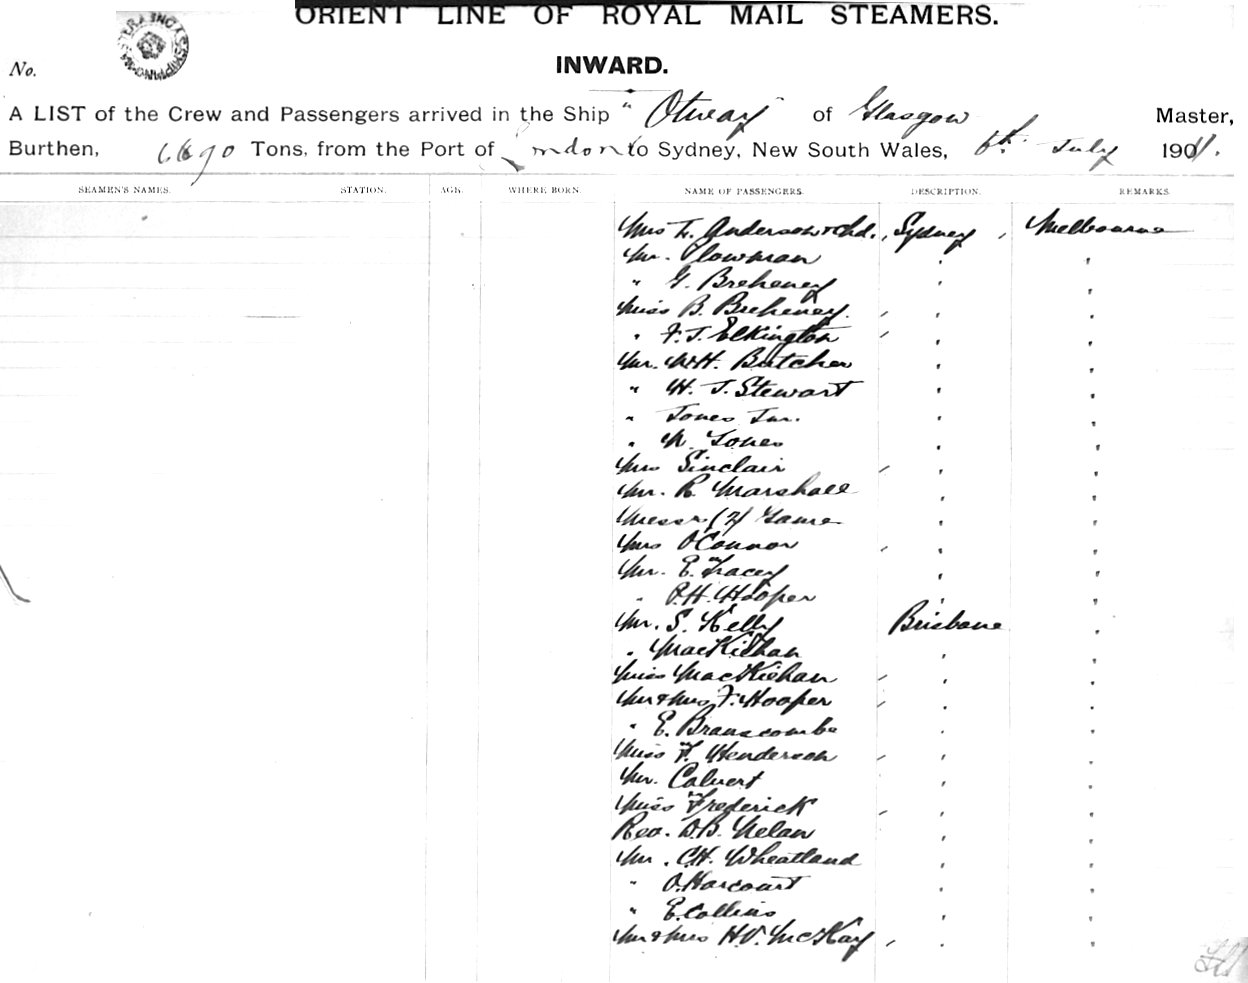 ORIENT LINE OF ROYAL MAIL STEAMERS.
No.
INWARD.
A LIST of the Crew and Passengers arrived in the Ship "Otway" of Glasgow Master,
Burthen, 6690 Tons, from the Port of London to Sydney, New South Wales, 6th July 1911.
SEAMEN'S NAMES. STATION. AGE. WHERE BORN. NAME OF PASSENGERS. DESCRIPTION. REMARKS.
Mrs L. Anderson & Chd. , Sydney , Melbourne
Mr. Plowman " "
" G. Breheney " "
Miss B. Breheney , " "
" F. J. Elkington , " "
Mr. W.H. Butcher " "
" W. J. Stewart " "
" Jones Jnr. " "
" W Jones " "
Mrs Sinclair , " "
Mr. R. Marshall " "
Messrs (2) " "
Mrs O'Connor , " "
Mr. E. Tracey " "
" P.H. Hooper " "
Mr. S. Kelly Brisbane "
" " "
Miss , " "
Mr & Mrs F. Hooper , " "
" E. Branscombe " "
Miss F. Henderson , " "
Mr. Calvert " "
Miss Frederick , " "
Rev. D.B. Nelan " "
Mr. C.H. Wheatland " "
" O. Harcourt " "
" E. Collins " "
Mr & Mrs H.V. McKay , " "